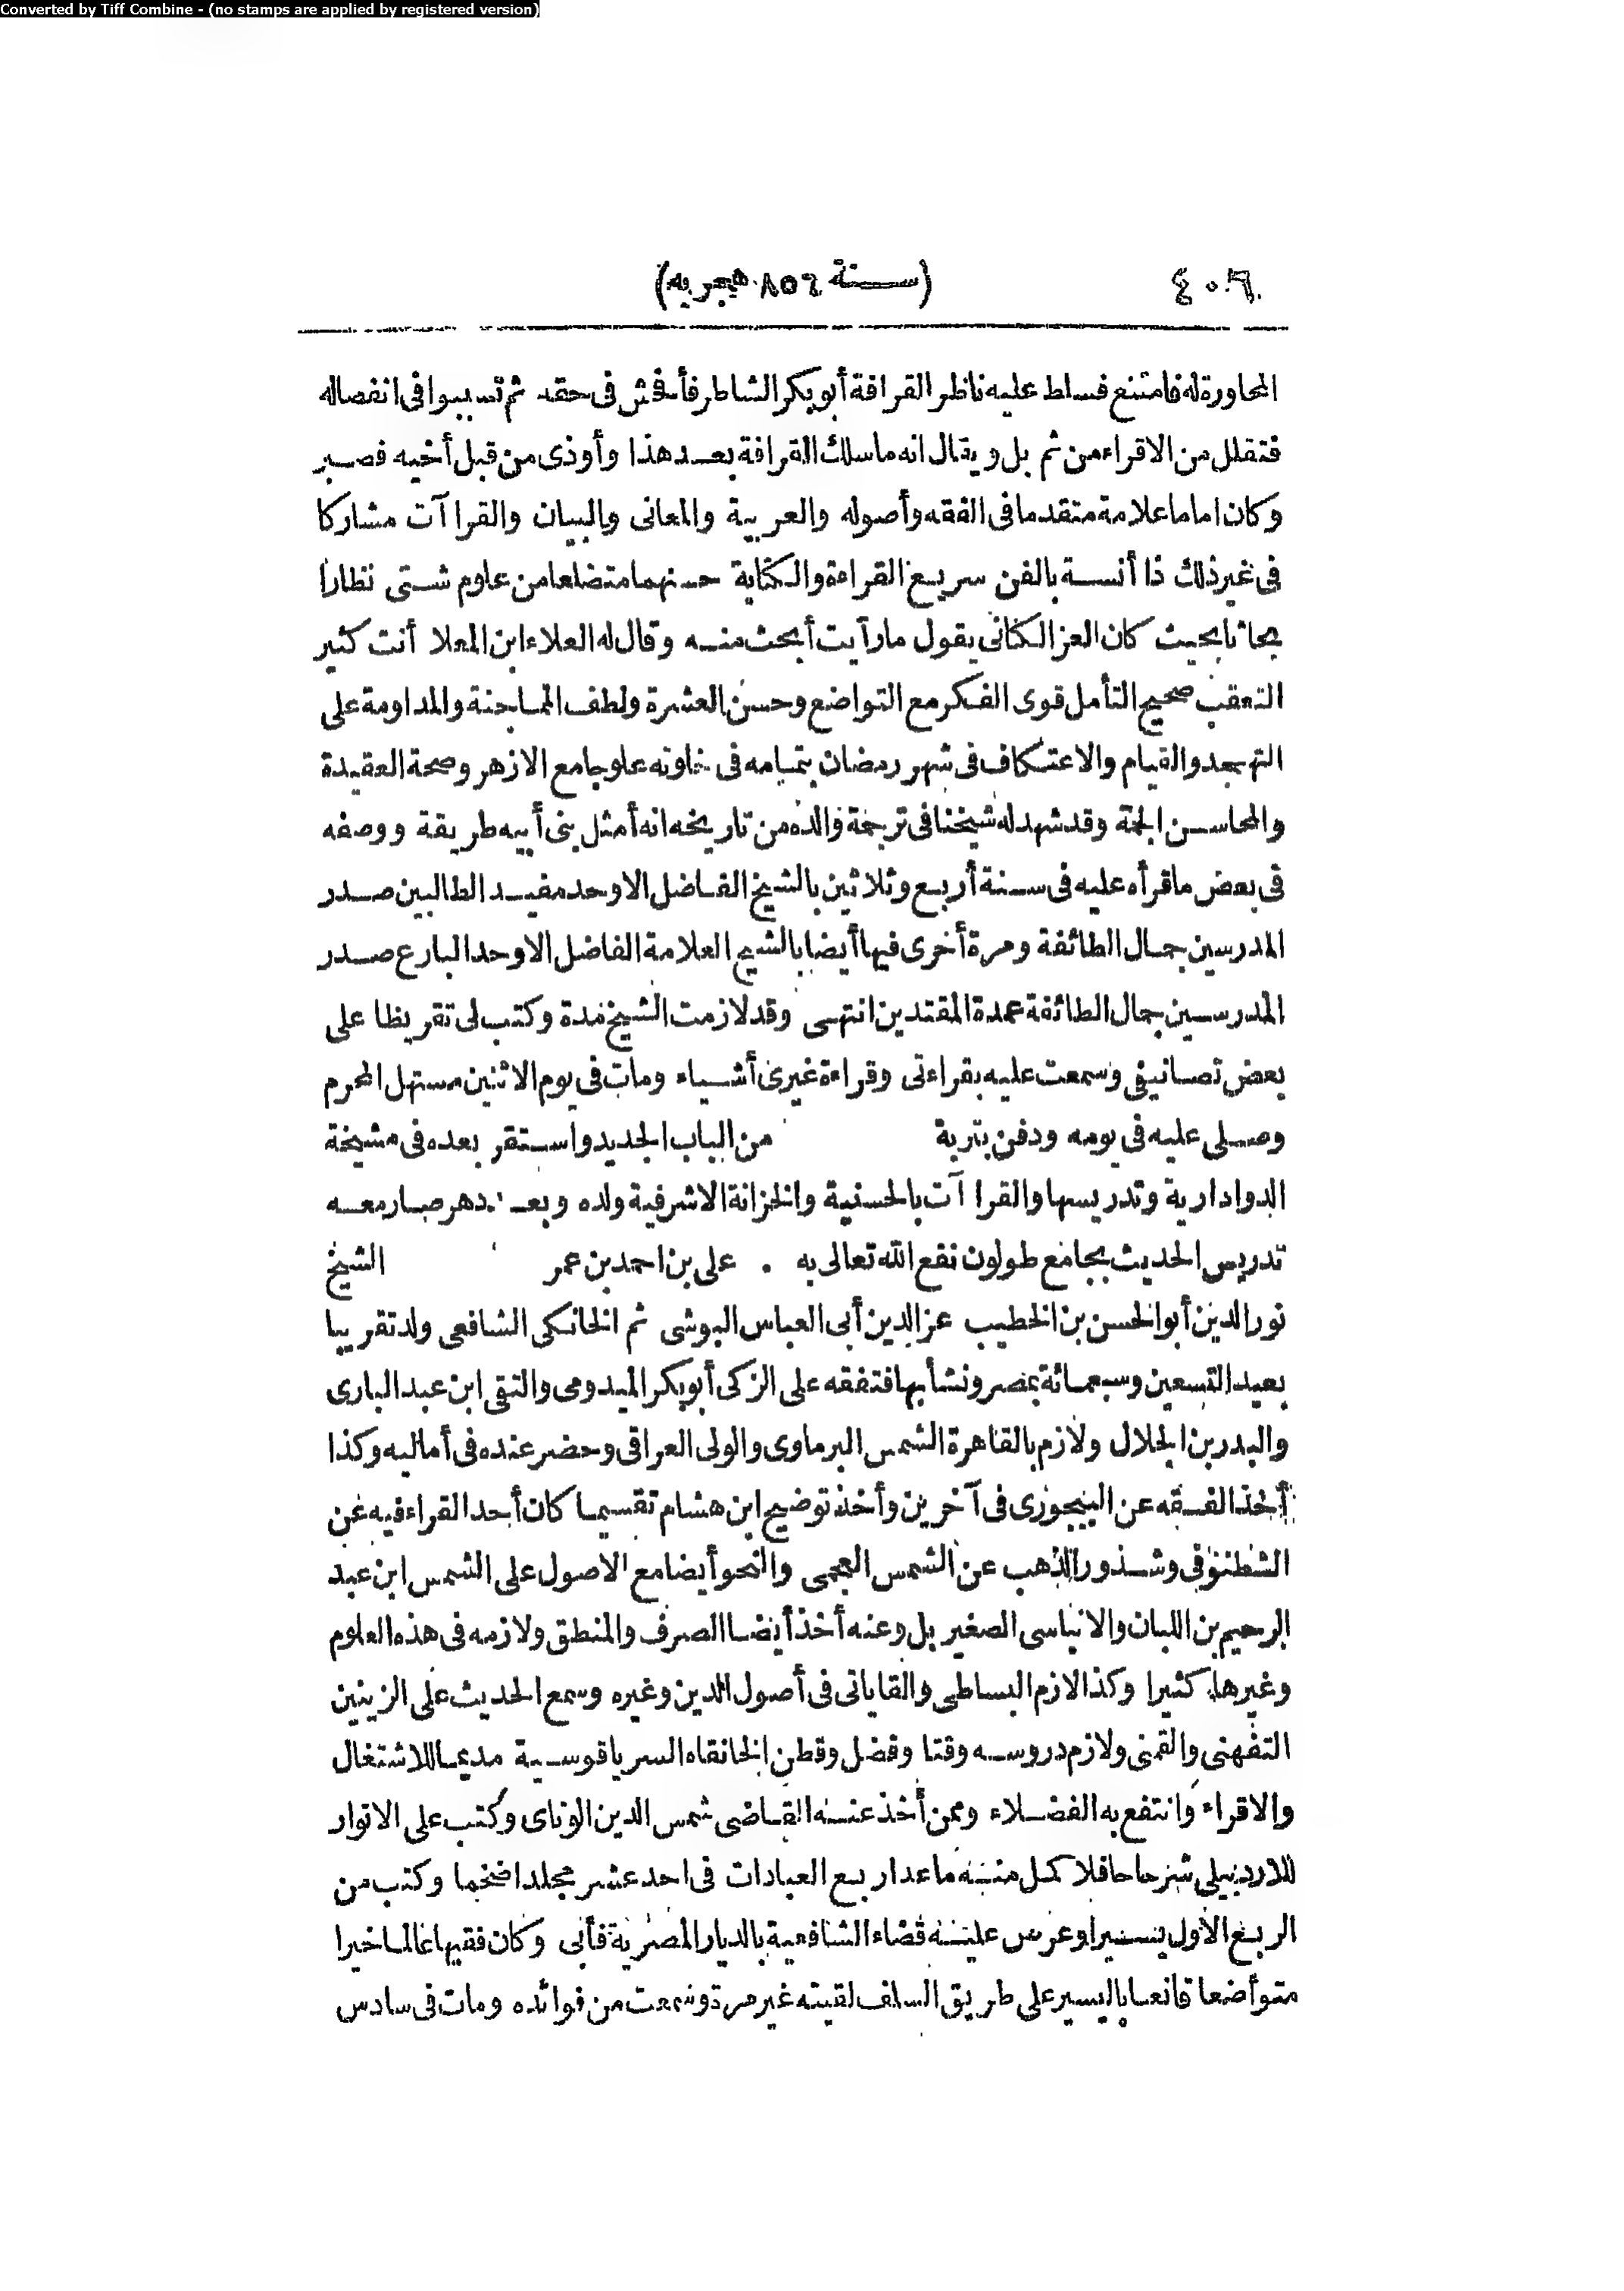 Converted by Tiff Combine - (no stamps are applied by registered version)
٤٠٦ (سنة ٨٥٦ هجريه)
المجاورة له فامتنع فسلط عليه ناظر القرافة أبو بكر الشاطر فأفحش فى حقه ثم تسببوا فى انفصاله
فتقلل من الاقراء من ثم بل ويقال انه ما سلك القرافة بعد هذا وأوذى من قبل أخيه فصبر
وكان اماما علامة متقدما فى الفقه وأصوله والعربية والمعانى والبيان والقراآت مشاركا
فى غير ذلك ذا أنسة بالفن سريع القراءة والكتابة حسنهما متضلعا من علوم شتى نظارا
بحاثا بحيث كان العز الكنانى يقول مارآيت أبحث منه وقال له العلاء ابن المعلا أنت كثير
التعقب صحيح التأمل قوى الفكر مع التواضع وحسن العشرة ولطف المماجنة والمداومة على
التهجد والقيام والاعتكاف فى شهر رمضان بتمامه فى خلوته علو جامع الازهر وصحة العقيدة
والمحاسن الجمة وقد شهد له شيخنا فى ترجمة والده من تاريخه انه أمثل بنى أبيه طريقة ووصفه
فى بعض ما قرأه عليه فى سنة أربع وثلاثين بالشيخ الفاضل الاوحد مفيد الطالبين صدر
المدرسين جمال الطائفة ومرة أخرى فيها أيضا بالشيخ العلامة الفاضل الاوحد البارع صدر
المدرسين جمال الطائفة عمدة المقتدين انتهى وقد لازمت الشيخ مدة وكتب لى تقريظا على
بعض تصانيفى وسمعت عليه بقراءتى وقراءة غيرى أشياء ومات فى يوم الاثنين مستهل المحرم
وصلى عليه فى يومه ودفن بتربة من الباب الجديد واستقر بعده فى مشيخة
الدوادارية وتدريسها والقراآت بالحسنية والخزانة الاشرفية ولده وبعد دهر صار معه
تدريس الحديث بجامع طولون نفع الله تعالى به . على بن احمد بن عمر الشيخ
نور الدين أبو الحسن بن الخطيب عز الدين أبى العباس البوشى ثم الخانكى الشافعى ولد تقريبا
بعيد التسعين وسبعمائة بمصر ونشأ بها فتفقه على الزكى أبو بكر الميدومى والتقى ابن عبد البارى
والبدر بن الخلال ولازم بالقاهرة الشمس البرماوى والولى العراقى وحضر عنده فى أماليه وكذا
أخذ الفقه عن البيجورى فى آخرين وأخذ توضيح ابن هشام تقسيما كان أحد القراء فيه عن
الشطنوفى وشذور الذهب عن الشمس العجمى والنحو أيضا مع الاصول على الشمس ابن عبد
الرحيم بن اللبان والابناسى الصغير بل وعنه أخذ أيضا الصرف والمنطق ولازمه فى هذه العلوم
وغيرها كثيرا وكذا لازم البساطى والقاياتى فى أصول الدين وغيره وسمع الحديث على الزينين
التفهنى والقمنى ولازم دروسه وقتا وفضل وقطن الخانقاه السرياقوسية مديما للاشتغال
والاقراء وانتفع به الفضلاء وممن أخذ عنه القاضى شمس الدين الوناى وكتب على الانوار
للاردبيلى شرحا حافلا كمل منه ما عدا ربع العبادات فى احد عشر مجلدا ضخما وكتب من
الربع الأول يسيرا وعرض عليه قضاء الشافعية بالديار المصرية فأبى وكان فقيها عالما خيرا
متواضعا قانعا باليسير على طريق السلف لقيته غير مرة وسمعت من فوائده ومات فى سادس